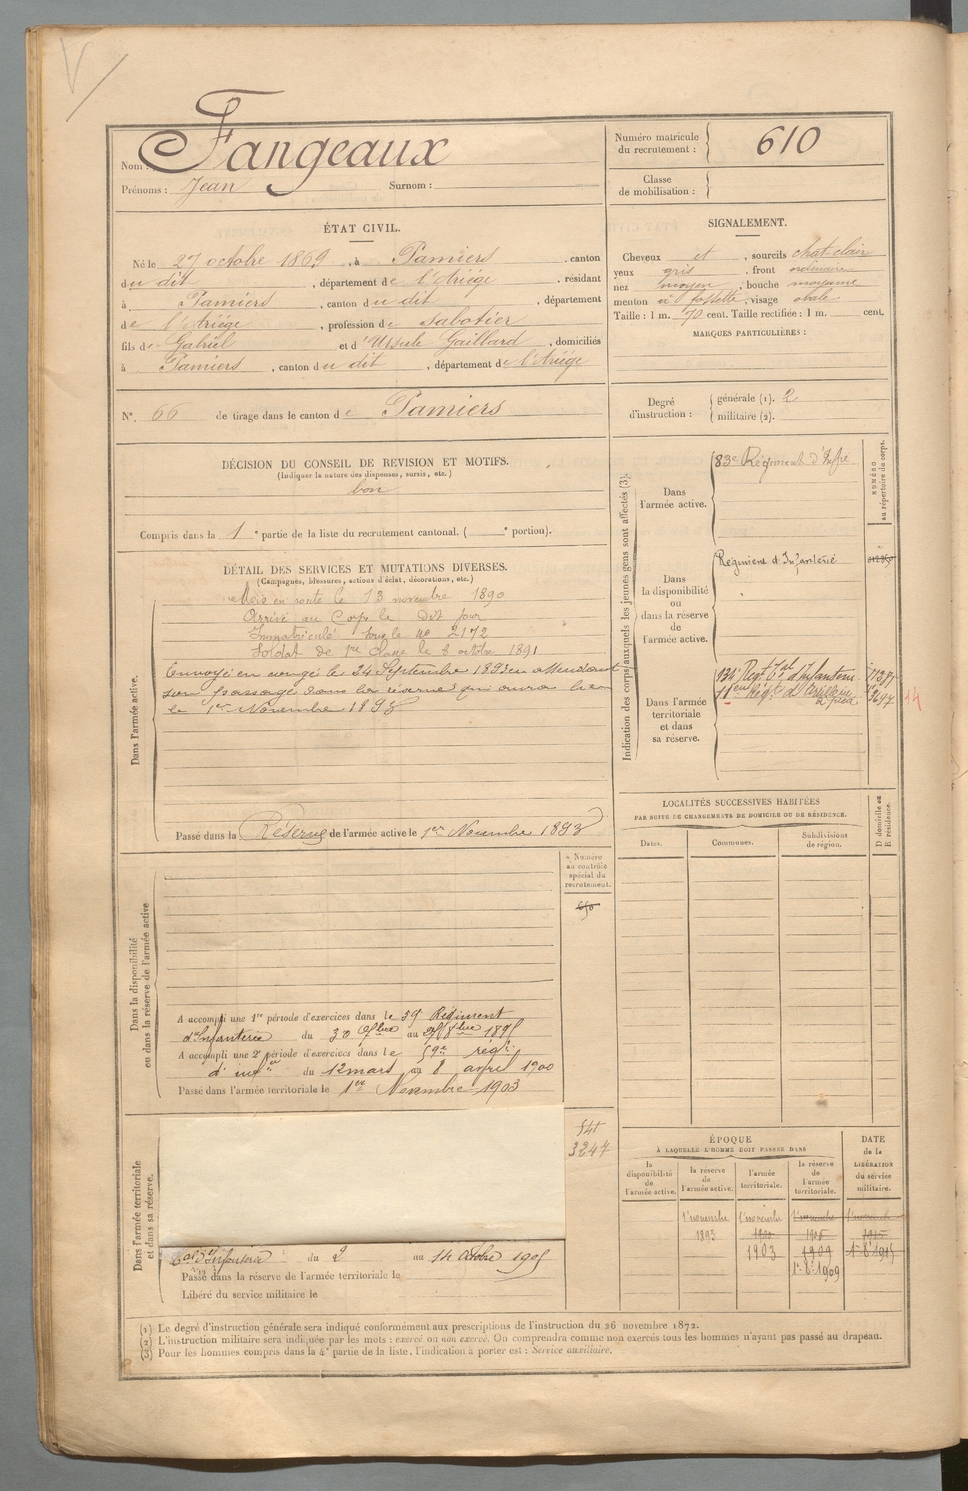 Nom : Fangeaux
Prénoms : Jean Surnom :
Numéro matricule du recrutement : 610
Classe de mobilisation :
ÉTAT CIVIL.
Né le 27 octobre 1869, à Pamiers, canton
du dit, département de l'Ariége, résidant
à Pamiers, canton du dit, département
de l'Ariége, profession de Sabotier
fils de Gabriel et d'Ursule Gaillard, domiciliés
à Pamiers, canton du dit, département de l'Ariége
SIGNALEMENT.
Cheveux et, sourcils chat-clair
yeux gris, front ordinaire
nez moyen, bouche moyenne
menton à fossette, visage ovale
Taille : 1 m. 70 cent. Taille rectifiée : 1 m. cent.
MARQUES PARTICULIÈRES :
N°. 66 de tirage dans le canton de Pamiers
Degré d'instruction : générale (1). 2
militaire (2).
DÉCISION DU CONSEIL DE REVISION ET MOTIFS.
(Indiquer la nature des dispenses, sursis, etc.)
bon
Compris dans la 1e partie de la liste du recrutement cantonal. ( e portion).
DÉTAIL DES SERVICES ET MUTATIONS DIVERSES.
(Campagnes, blessures, actions d'éclat, décorations, etc.)
Dans l'armée active.
Mis en route le 13 novembre 1890
Arrivé au Corps le Dit jour
Immatriculé sous le no 2172
Soldat de 1re classe le 8 octobre 1891
Envoyé en congé le 24 Septembre 1893 en attendant
son passage dans la réserve qui aura lieu
le 1er Novembre 1893
Passé dans la Réserve de l'armée active le 1er Novembre 1893
Indication des corps auxquels les jeunes gens sont affectés (3).
NUMÉRO au répertoire du corps.
Dans l'armée active.
83e Régiment d'Infrie
Dans la disponibilité ou dans la réserve de l'armée active.
Régiment d'Infanterie
Dans l'armée territoriale et dans sa réserve.
134e Regt Tal d'Infanterie
11em Régt d'Artillerie
à pied
14
LOCALITÉS SUCCESSIVES HABITÉES
PAR SUITE DE CHANGEMENTS DE DOMICILE OU DE RÉSIDENCE.
Dates. Communes. Subdivisions de région. D domicile ou R résidence.
Dans la disponibilité ou dans la réserve de l'armée active
Numéro au contrôle spécial du recrutement.
A accompli une 1re période d'exercices dans le 59 Régiment
d'Infanterie du 30 7bre au 8bre 1895
A accompli une 2e période d'exercices dans le 59e régt
d'infie du 12 mars au 8 avril 1900
Passé dans l'armée territoriale le 1er Novembre 1903
Dans l'armée territoriale et dans sa réserve.
541
3247
d'Infanterie du 2 au 14 Octobre 1905
Passé dans la réserve de l'armée territoriale le
Libéré du service militaire le
ÉPOQUE
À LAQUELLE L'HOMME DOIT PASSER DANS
la disponibilité de l'armée active. la réserve de l'armée active. l'armée territoriale. la réserve de l'armée territoriale.
DATE de la LIBÉRATION du service militaire.
1 novembre 1 novembre 1 novembre 1 novembre
1893 1900 1906 1915
1903 1909 1-8-1915
1-8-1909
(1) Le degré d'instruction générale sera indiqué conformément aux prescriptions de l'instruction du 26 novembre 1872.
(2) L'instruction militaire sera indiquée par les mots : exercé ou non exercé. On comprendra comme non exercés tous les hommes n'ayant pas passé au drapeau.
(3) Pour les hommes compris dans la 4e partie de la liste, l'indication à porter est : Service auxiliaire.